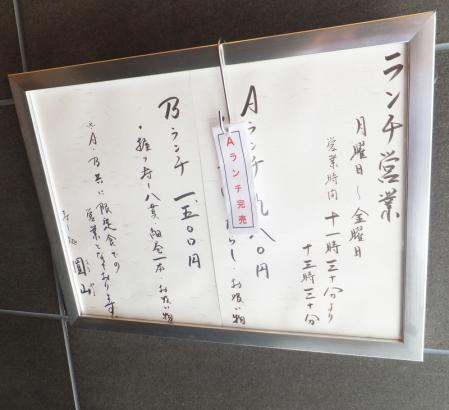 ランチ営業
月曜日～金曜日
営業時間 十一時三十分より
十三時三十分
Aランチ 九八〇円
らし・お吸い物
Aランチ完売
Bランチ 一五〇〇円
・握り寿し八貫・細巻一本・お吸い物
※A・B共に限定食での
営業となっております。
圓山